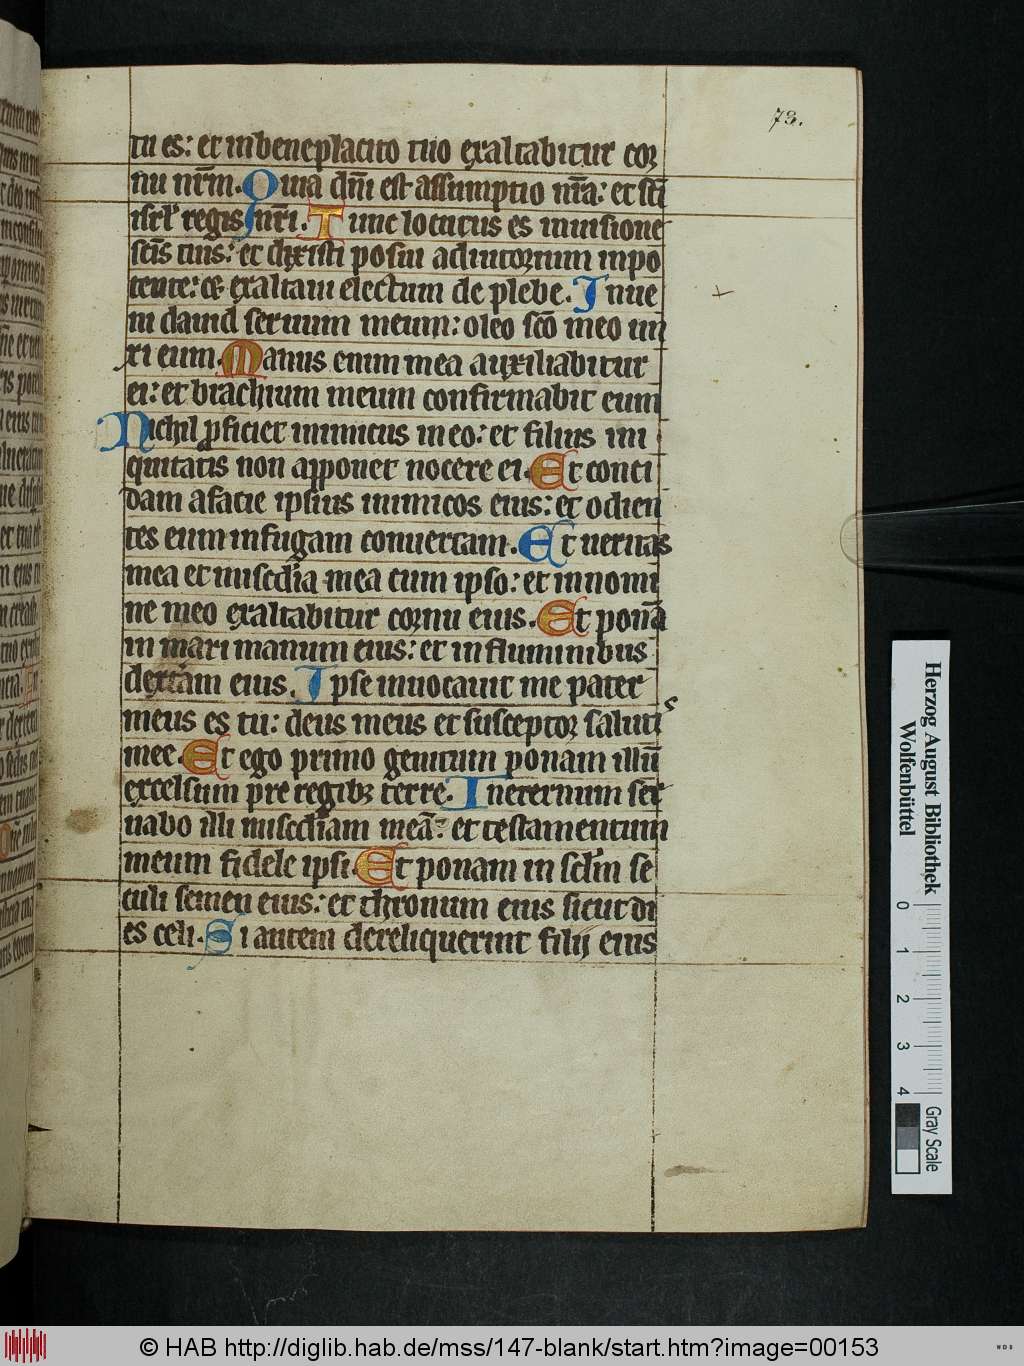 73.
tu es: et in beneplacito tuo exaltabitur cor
nu nr̄m. Quia dn̄i est assumptio nr̄a: et sc̄i
isrl' regis nr̄i. Tunc locutus es in uisione
sc̄is tuis: et dixisti posui adiutorium in po
tente: et exaltaui electum de plebe. Inue
ni dauid seruum meum: oleo sc̄o meo un
xi eum. Manus enim mea auxiliabitur
ei: et brachium meum confirmabit eum
Nichil ꝓficiet inimicus in eo: et filius ini
quitatis non apponet nocere ei. Et conci
dam a facie ipsius inimicos eius: et odien
tes eum in fugam conuertam. Et ueritas
mea et miscd̄ia mea cum ipso: et in nomi
ne meo exaltabitur cornu eius. Et ponā
in mari manum eius: et in fluminibus
dexteram eius. Ipse inuocauit me pater
meus es tu: deus meus et susceptor saluti s
mee. Et ego primo genitum ponam illū
excelsum pre regibꝫ terre. In eternum ser
uabo illi miscdiam meā: et testamentum
meum fidele ipsi. Et ponam in sclm̄ se
culi semen eius: et thronum eius sicut di
es celi. Si autem dereliquerint filij eius
Herzog August Bibliothek
Wolfenbüttel
0 1 2 3 4
Gray Scale
© HAB http://diglib.hab.de/mss/147-blank/start.htm?image=00153